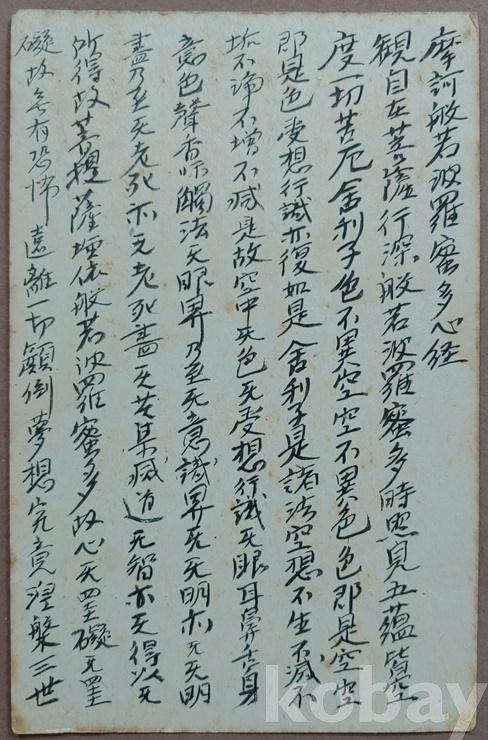 摩訶般若波羅蜜多心経
観自在菩薩行深般若波羅蜜多時照見五蘊皆空
度一切苦厄舍利子色不異空空不異色色即是空空
即是色受想行識亦復如是舍利子是諸法空想不生不滅不
垢不浄不增不减是故空中无色无受想行識无眼耳鼻舌身
意色聲香味觸法无眼界乃至无意識界无无明亦无无明
盡乃至无老死亦无老死盡无苦集滅道无智亦无得以无
所得故菩提薩埵依般若波羅蜜多故心无罣礙无罣
礙故無有恐怖遠離一切顚倒夢想究竟涅槃三世
kobay